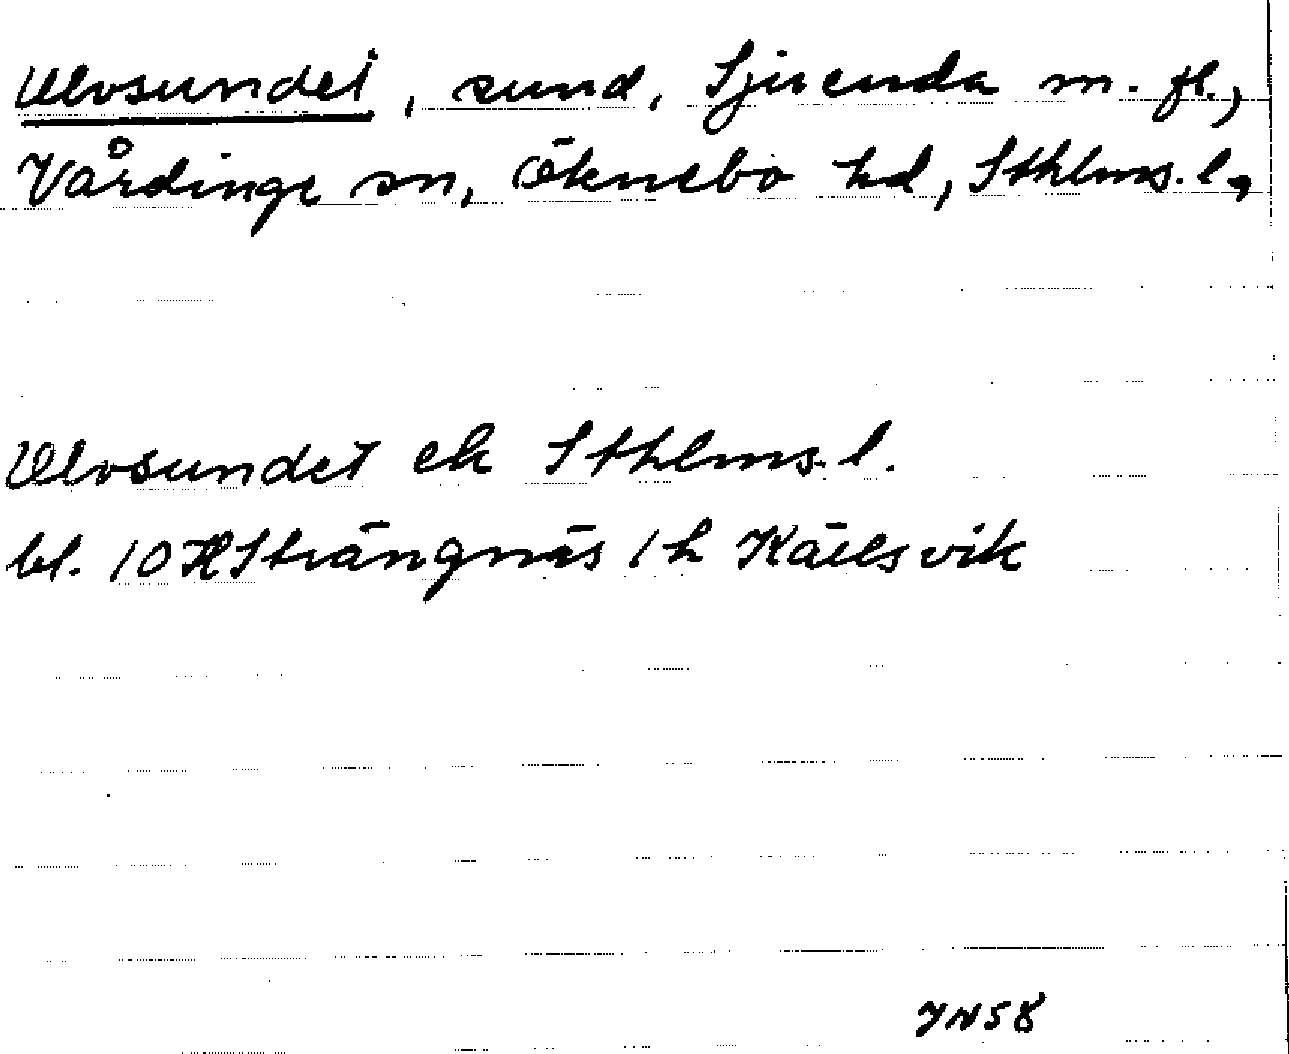 Ulvsundet, sund, Sjuenda m. fl.,
Vårdinge sn, Öknebo hd, Sthlms. l.,
Ulvsundet ek Sthlms. l.
bl. 10 H Strängnäs 1 h Källsvik
JN58